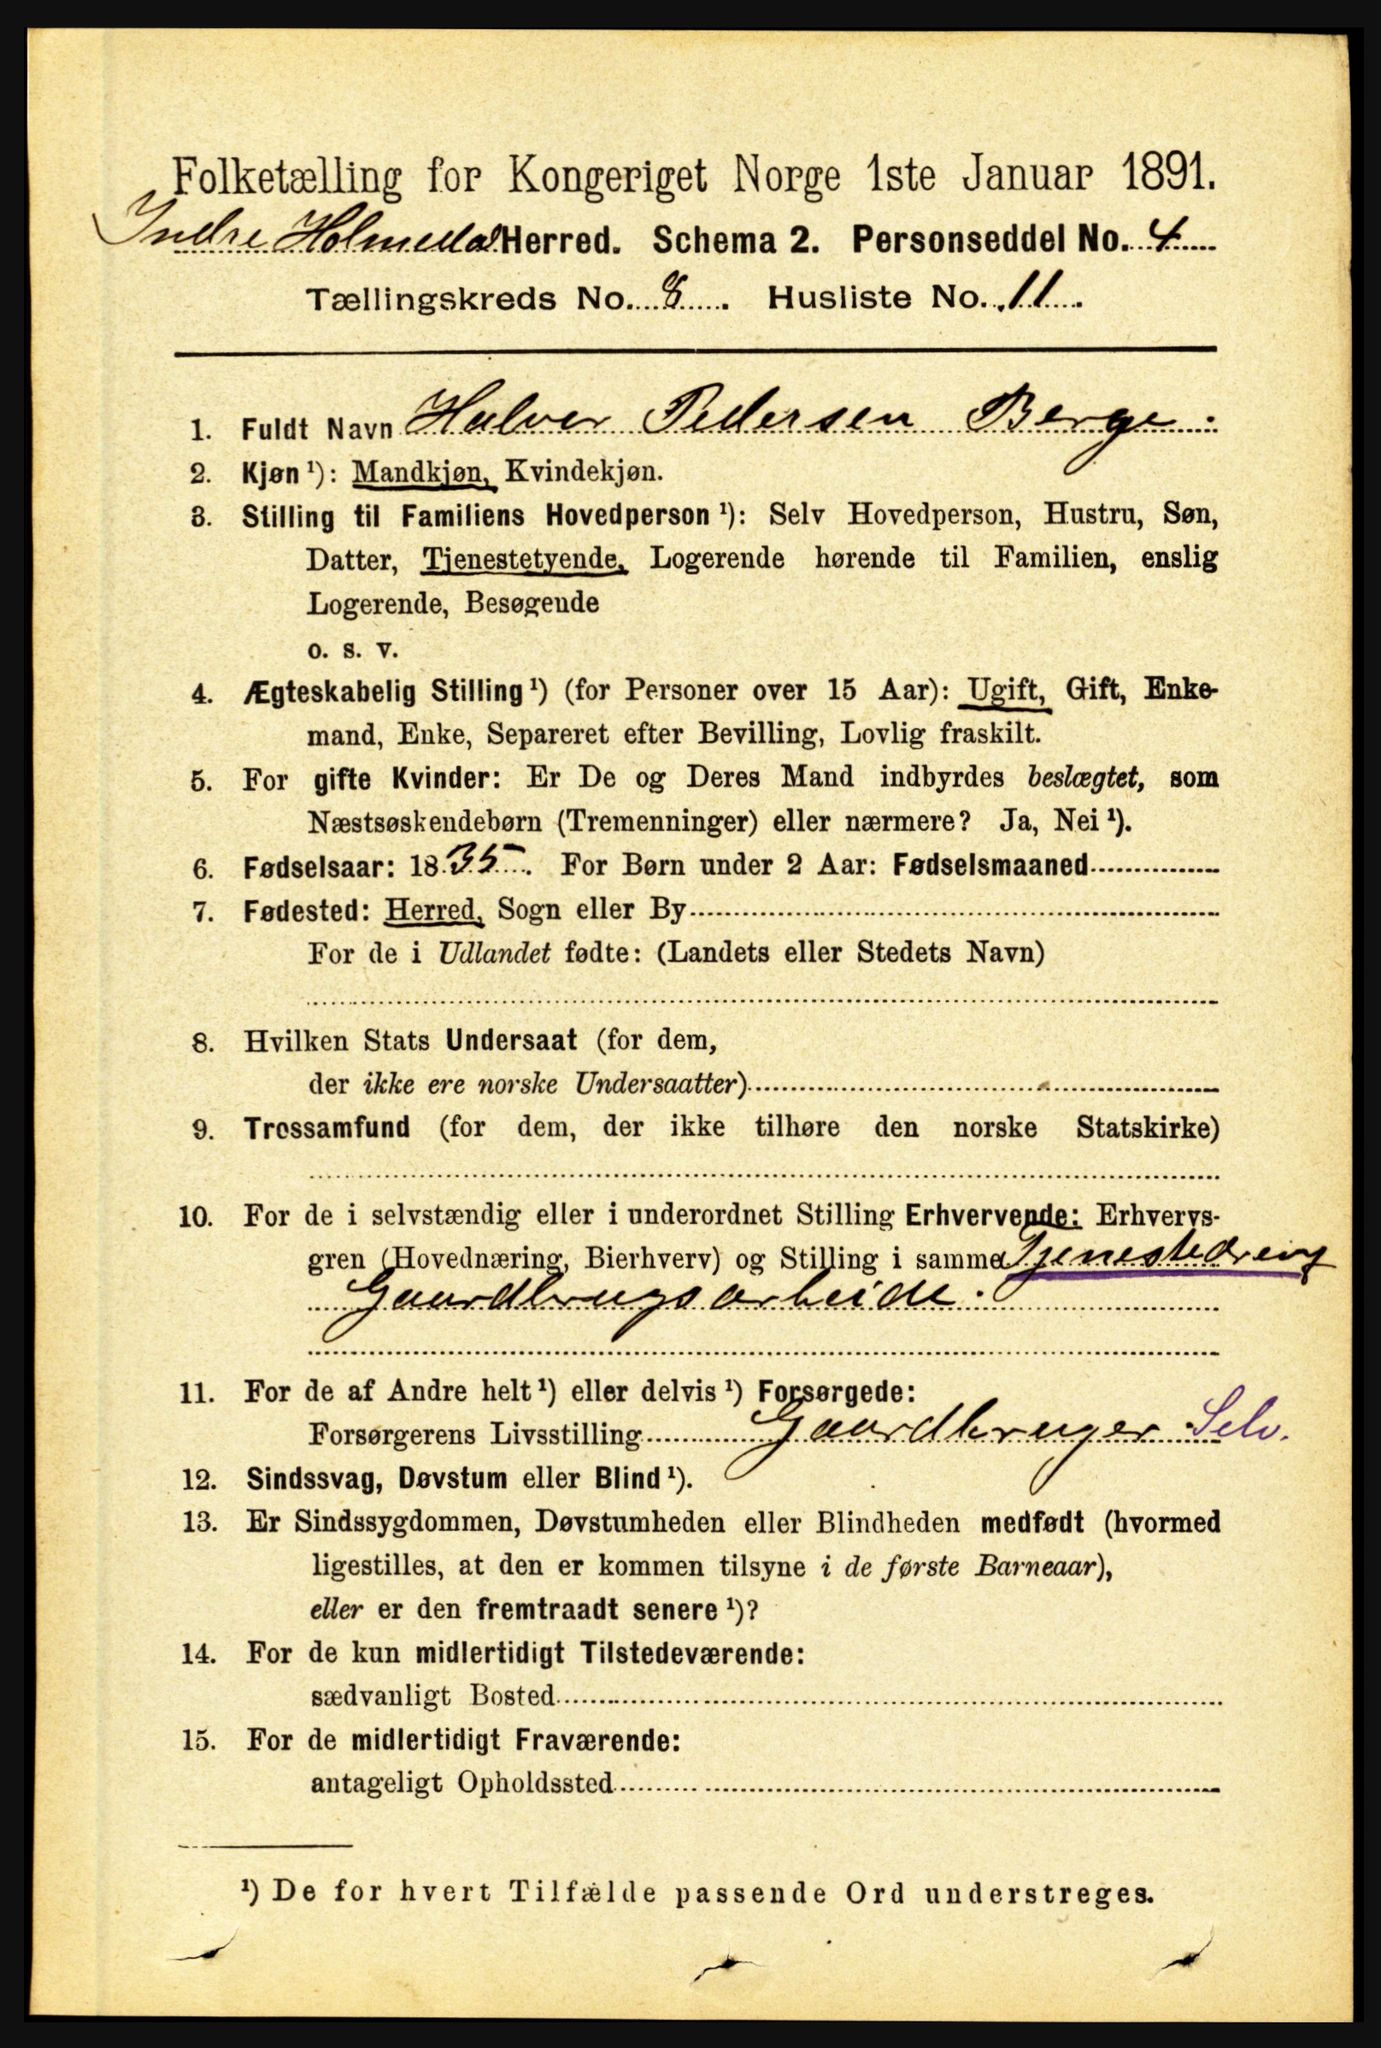 Folketælling for Kongeriget Norge 1ste Januar 1891.
Indre Holmedal Herred. Schema 2. Personseddel No. 4
Tællingskreds No. 8. Husliste No. 11.
1. Fuldt Navn Halvor Pedersen Berge.
2. Kjøn¹): Mandkjøn, Kvindekjøn.
3. Stilling til Familiens Hovedperson¹): Selv Hovedperson, Hustru, Søn,
Datter, Tjenestetyende, Logerende hørende til Familien, enslig
Logerende, Besøgende
o. s. v.
4. Ægteskabelig Stilling¹) (for Personer over 15 Aar): Ugift, Gift, Enke-
mand, Enke, Separeret efter Bevilling, Lovlig fraskilt.
5. For gifte Kvinder: Er De og Deres Mand indbyrdes beslægtet, som
Næstsøskendebørn (Tremenninger) eller nærmere? Ja, Nei¹).
6. Fødselsaar: 1835. For Børn under 2 Aar: Fødselsmaaned
7. Fødested: Herred, Sogn eller By
For de i Udlandet fødte: (Landets eller Stedets Navn)
8. Hvilken Stats Undersaat (for dem,
der ikke ere norske Undersaatter)
9. Trossamfund (for dem, der ikke tilhøre den norske Statskirke)
10. For de i selvstændig eller i underordnet Stilling Erhvervende: Erhvervs-
gren (Hovednæring, Bierhverv) og Stilling i samme Tjenestedreng
Gaardbrugsarbeide.
11. For de af Andre helt¹) eller delvis¹) Forsørgede:
Forsørgerens Livsstilling Gaardbruger Selv.
12. Sindssvag, Døvstum eller Blind¹).
13. Er Sindssygdommen, Døvstumheden eller Blindheden medfødt (hvormed
ligestilles, at den er kommen tilsyne i de første Barneaar),
eller er den fremtraadt senere¹)?
14. For de kun midlertidigt Tilstedeværende:
sædvanligt Bosted
15. For de midlertidigt Fraværende:
antageligt Opholdssted
¹) De for hvert Tilfælde passende Ord understreges.